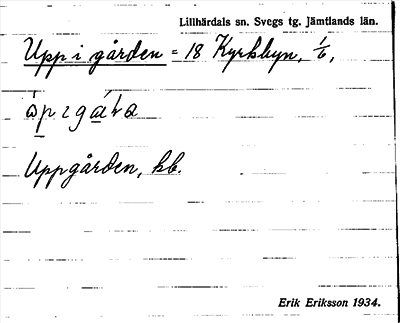 Lillhärdals sn. Svegs tg. Jämtlands län.
Upp i gården = 18 Kyrkbyn, 1/6,
Uppgården, kb.
Erik Eriksson 1934.